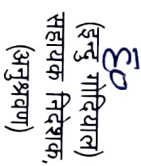 (इन्दु गोदियाल)
सहायक निदेशक,
(अनुश्रवण)